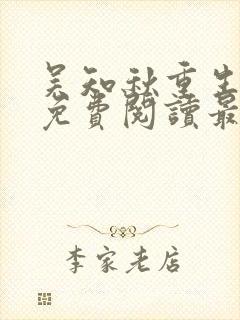 吴知秋重生
免費閱讀最
李家老店